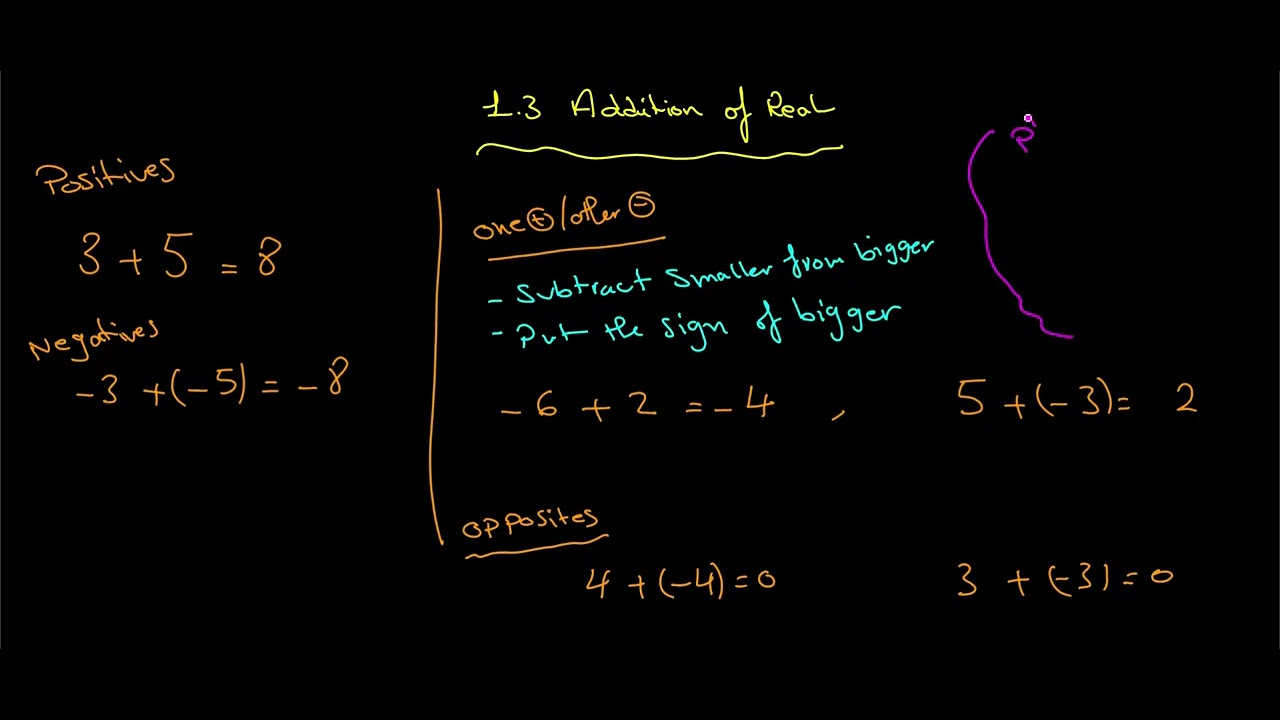 1.3 Addition of Real
Positives
3 + 5 = 8
Negatives
-3 + (-5) = -8
one ⊕ / other ⊖
- Subtract smaller from bigger
- Put the sign of bigger
-6 + 2 = -4 , 5 + (-3) = 2
opposites
4 + (-4) = 0 3 + (-3) = 0